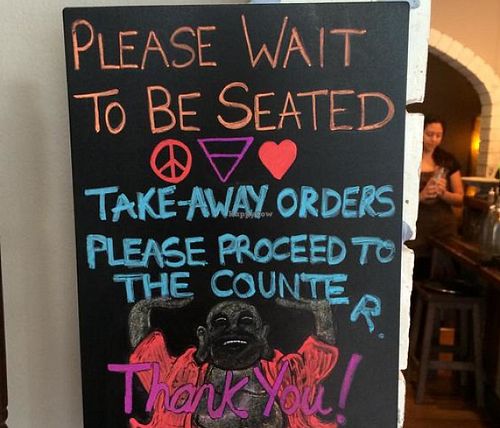 PLEASE WAIT
TO BE SEATED
TAKE-AWAY ORDERS
PLEASE PROCEED TO
THE COUNTE
R.
Thank You!